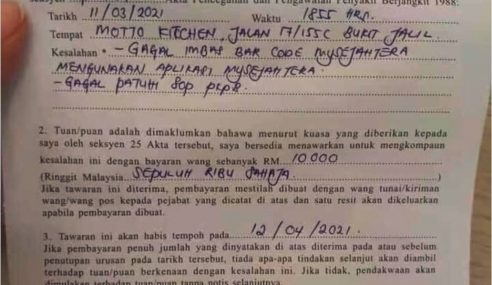 Akta Pencegahan dan Pengawalan Penyakit Berjangkit 1988:
Tarikh 11/03/2021 Waktu 1855 HRS.
Tempat MOTTO KITCHEN, JALAN 17/155C BUKIT JALIL.
Kesalahan * - GAGAL IMBAS BAR CODE MYSEJAHTERA
MENGUNAKAN APLIKASI MYSEJAHTERA.
- GAGAL PATUHI SOP PKPB.
2. Tuan/puan adalah dimaklumkan bahawa menurut kuasa yang diberikan kepada
saya oleh seksyen 25 Akta tersebut, saya bersedia menawarkan untuk mengkompaun
kesalahan ini dengan bayaran wang sebanyak RM 10 000
(Ringgit Malaysia SEPULUH RIBU SAHAJA )
Jika tawaran ini diterima, pembayaran mestilah dibuat dengan wang tunai/kiriman
wang/wang pos kepada pejabat yang dicatat di atas dan satu resit akan dikeluarkan
apabila pembayaran dibuat.
3. Tawaran ini akan habis tempoh pada 12/04/2021.
Jika pembayaran penuh jumlah yang dinyatakan di atas diterima pada atau sebelum
penutupan urusan pada tarikh tersebut, tiada apa-apa tindakan selanjut akan diambil
terhadap tuan/puan berkenaan dengan kesalahan ini. Jika tidak, pendakwaan akan
dimulakan terhadap tuan/puan tanpa notis selanjutnya.